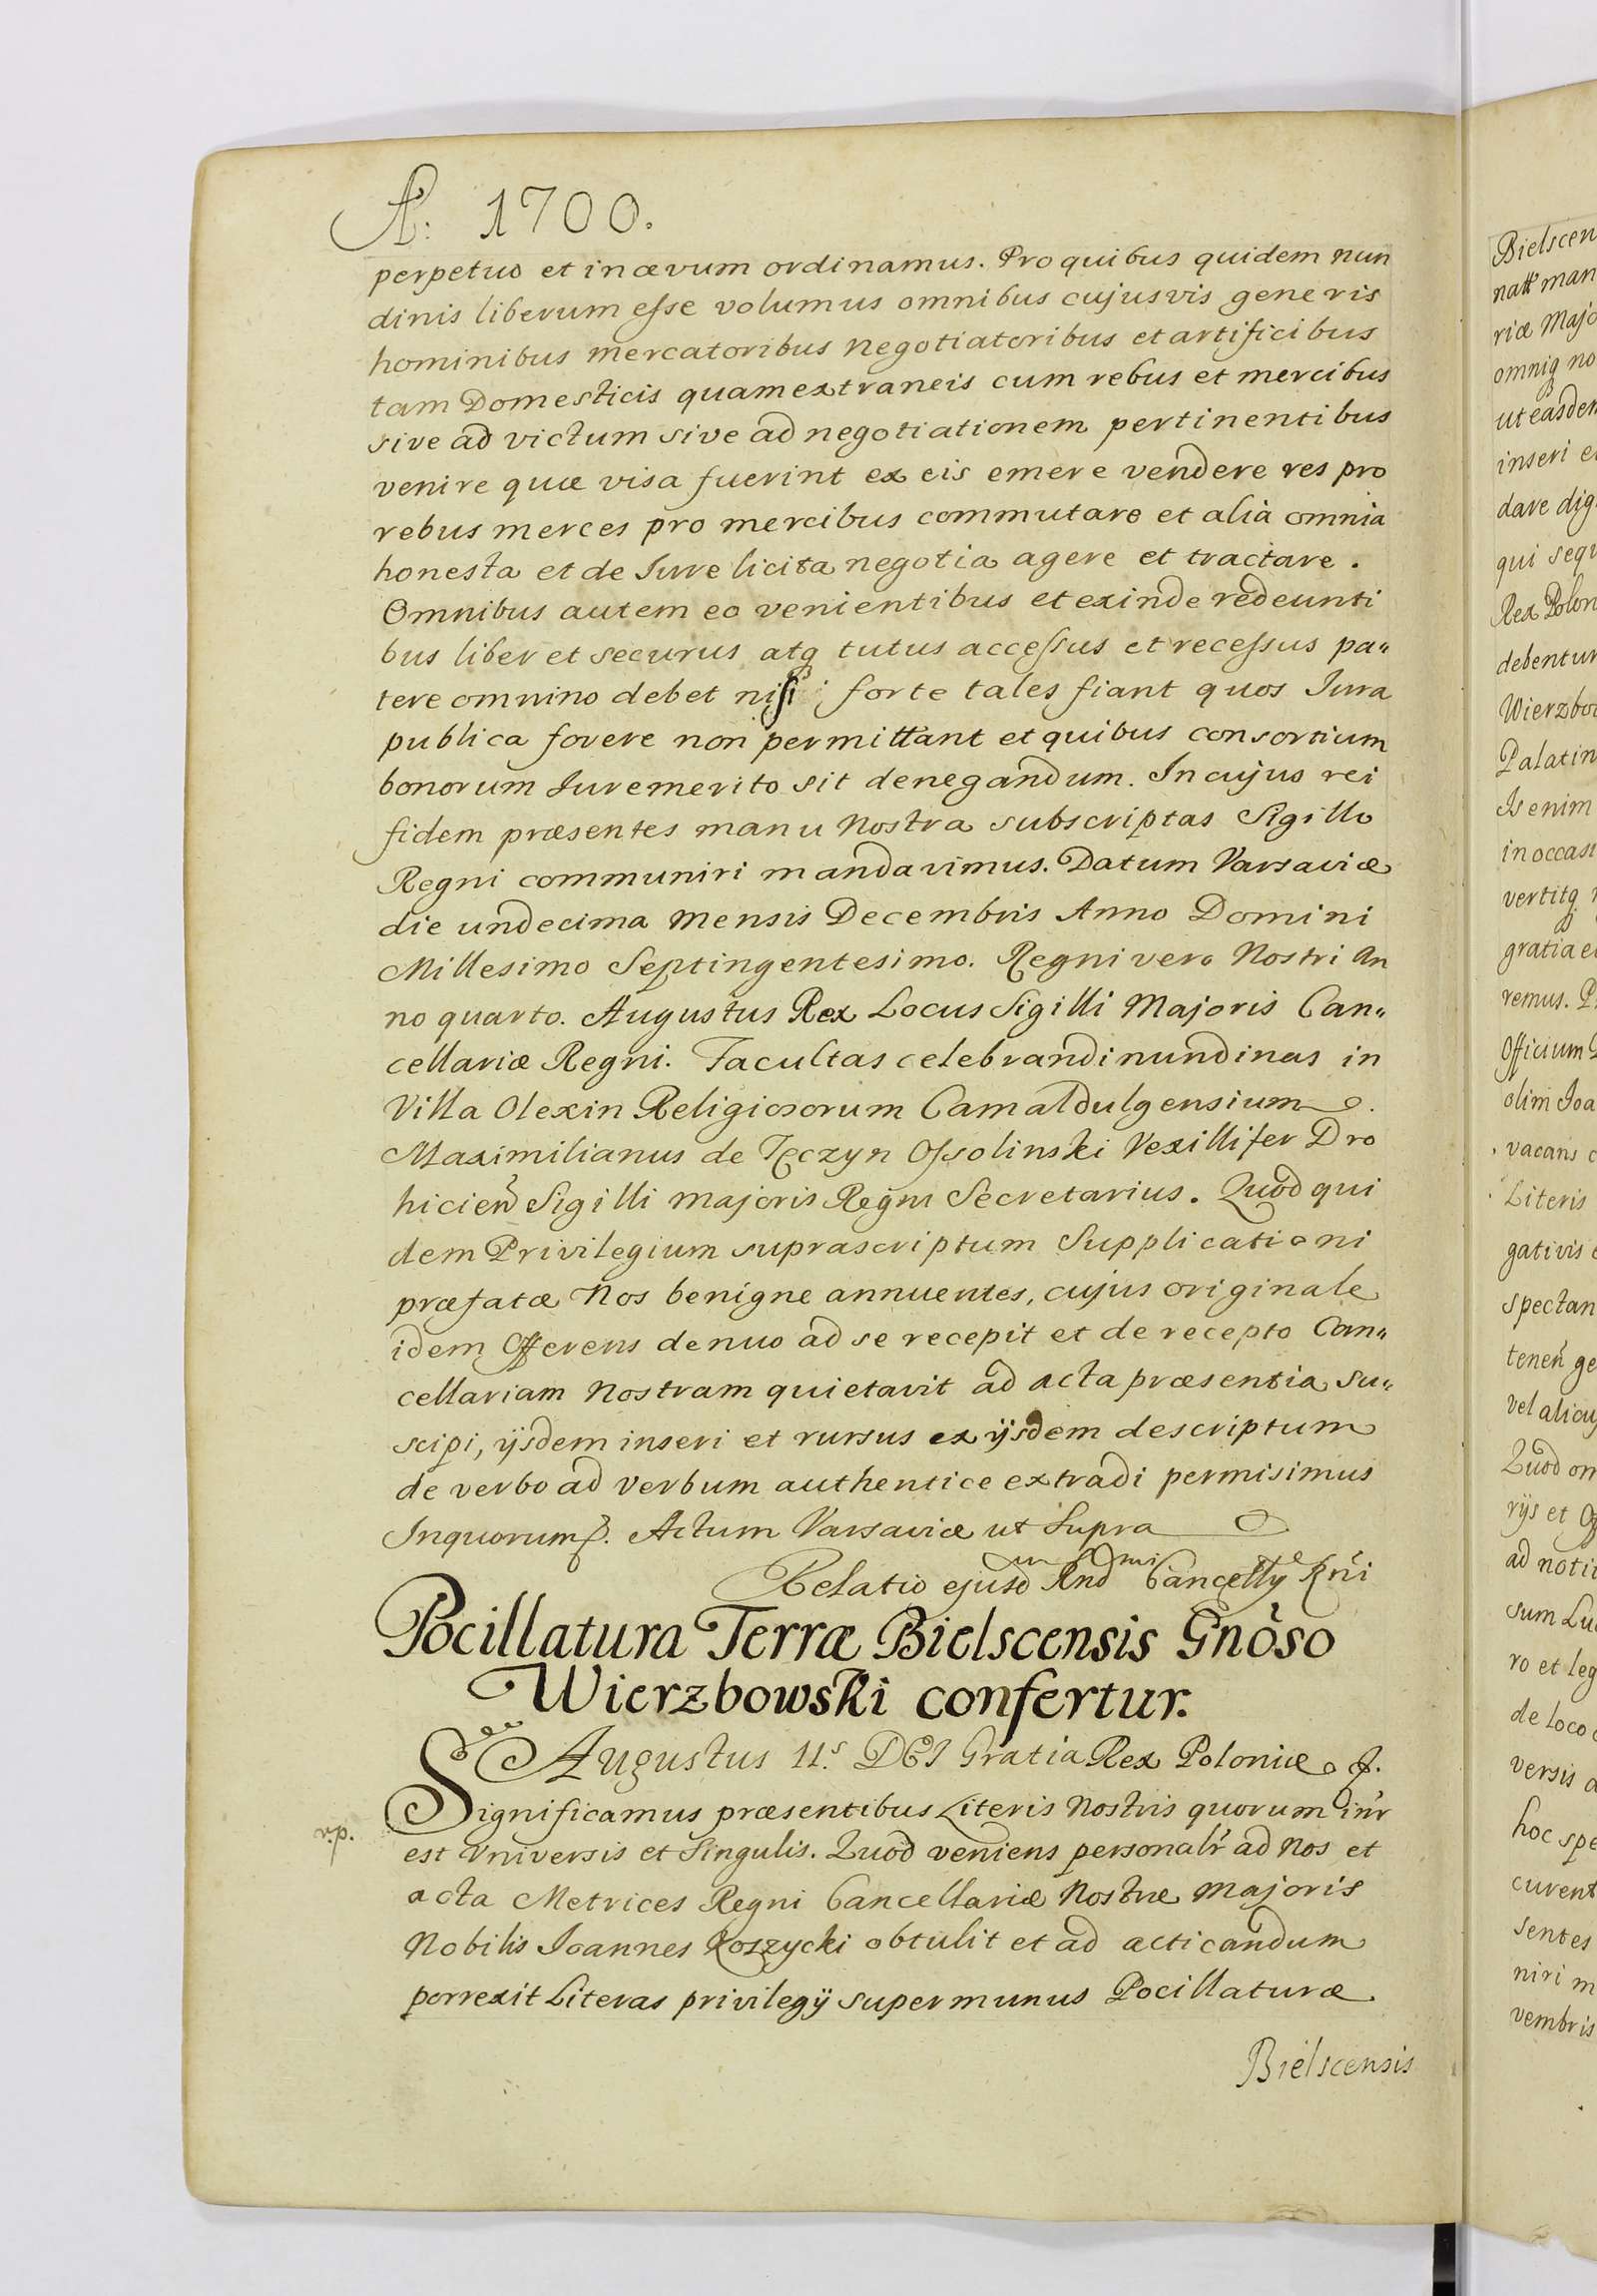 A: 1700.
perpetuo et in ævum ordinamus. Pro quibus quidem nun
dinis liberum esse volumus omnibus cujusvis generis
hominibus mercatoribus negotiatoribus et artificibus
tam Domesticis quam extraneis cum rebus et mercibus
sive ad victum sive ad negotiationem pertinentibus
venire quæ visa fuerint ex eis emere vendere res pro
rebus merces pro mercibus commutare et alia omnia
honesta et de Iure licita negotia agere et tractare.
Omnibus autem eo venientibus et exinde redeunti
bus liber et securus atq tutus accessus et recessus pa„
tere omnino debet nisi forte tales fiant quos Iura
publica fovere non permittant et quibus consortium
bonorum Iure merito sit denegandum. In cujus rei
fidem præsentes manu Nostra subscriptas Sigillo
Regni communiri mandavimus. Datum Varsaviæ
die undecima Mensis Decembris Anno Domini
Millesimo Septingentesimo. Regni vero Nostri An
no quarto. Augustus Rex Locus Sigilli Majoris Can„
cellariæ Regni. Facultas celebrandi nundinas in
Villa Olexin Religiosorum Camaldulgensium
Maximilianus de Tęczyn Ossolinski Vexillifer Dro
hicien Sigilli majoris Regni Secretarius. Quod qui
dem Privilegium suprascriptum Supplicationi
præfatæ Nos benigne annuentes, cujus originale
idem Offerens denuo ad se recepit et de recepto Can„
cellariam Nostram quietavit ad acta præsentia su„
scipi, ijsdem inseri et rursus ex ijsdem descriptum
de verbo ad verbum authentice extradi permisimus
In quorum f. Actum Varsaviæ ut Supra
Relatio ejusd Rnd Cancelly Rni
Pocillatura Terræ Bielscensis Gnoso
Wierzbowski confertur.
Augustus II.s DEI Gratia Rex Poloniæ
Significamus præsentibus Literis Nostris quorum inr
r.p.
est Vniversis et Singulis. Quod veniens personalr ad Nos et
acta Metrices Regni Cancellariæ Nostræ Majoris
Nobilis Ioannes Roszycki obtulit et ad acticandum
porrexit Literas privilegij super munus Pocillaturæ
Bielscensis
Bielscen
natt man
riæ Majo
omniq no
ut easdem
inseri e
dare dig
qui sequ
Rex Polon
debentur
Wierzbo
Palatin
Is enim
in occasi
vertitq
gratia e
remus. P
Officium
olim Ioa
vacans
Literis
gativis
spectan
tenen ge
vel alicuj
Quod om
rijs et Off
ad notit
sum Lu
ro et leg
de loco
versis
hoc spe
curent
sentes
niri m
vembris